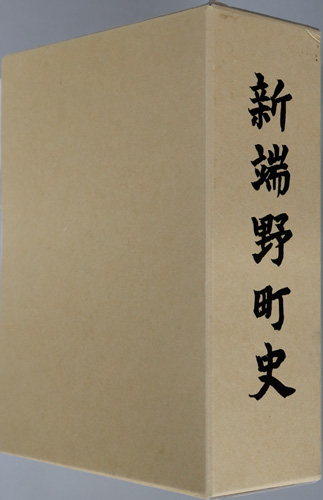 新端野町史